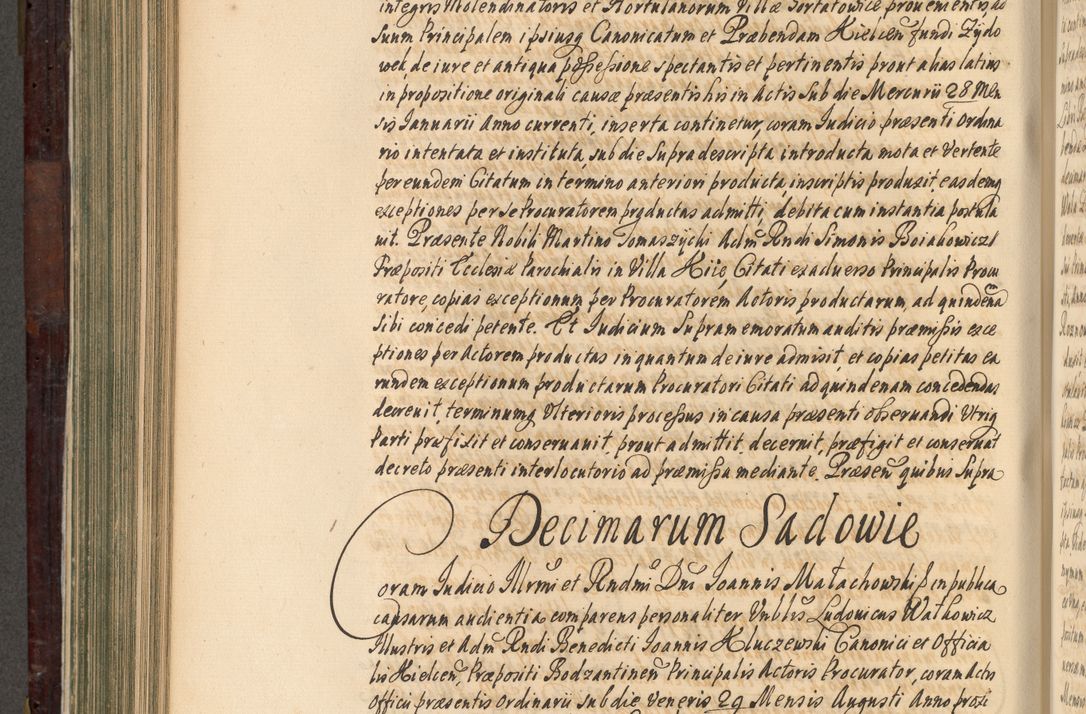 integris Molendinatoris et Hortulanorum Villæ Sertatowice prouenientis ad
Suum Principalem ipsiusq Canonicatum et Præbendam Kielcen fundi Zydo
wek, de iure et antiqua possessione spectantis et pertinentis prout alias latius
in propositione originali causæ præsentis his in Actis Sub die Mercurii 28 Men
sis Ianuarii Anno currenti, inserta continetur, coram Iudicio præsenti Ordina
rio intentata et instituta, sub die Supradescripta introducta mota et Vertente
per eundem Citatum in termino anteriori producta, in scriptis produxit, easdemq
exceptiones per se Procuratorem productas admitti, debita cum instantia postula
uit. Præsente Nobili Martino Tomaszycki Adm Rndi Simonis Boiakowicz
Præpositi Ecclesiæ Parochialis in Villa Kiie Citati ex aduerso Principalis Procu
ratore, copias exceptionum per Procuratorem Actoris productarum, ad quindena
Sibi concedi petente. Et Iudicium Supramemoratum auditis præmissis exce
ptiones per Actorem productas in quantum de iure admisit, et copias petitas ea
rundem exceptionum productarum Procuratori Citati ad quindenam concedendas
decreuit, terminumq Ulterioris processus in causa præsenti obseruandi Utriq
Parti præfixit et conseruauit, prout admittit, decernit, præfigit et conseruat
decreto præsenti interlocutorio ad præmissa mediante. Præsen quibus Supra
Decimarum Sadowie
Coram Iudicio Illrmi et Rndmi Dni Ioannis Małachowski E in publica
causarum audientia comparens personaliter Vnblis Ludouicus Walkowicz
Illustris et Adm Rndi Benedicti Ioannis Kluczewski Canonici et Officia
lis Kielcen, Præpositi Bodzantinen Principalis Actoris Procurator, coram Actis
Officii præsentis Ordinarii sub die Veneris 29 Mensis Augusti Anno proxi